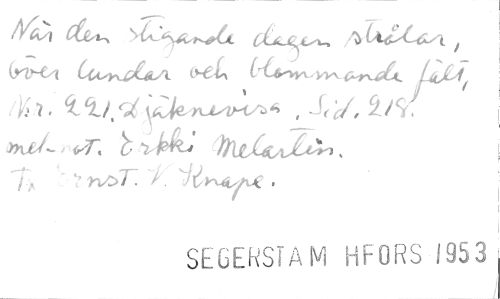 När den stigande dagen strålar,
över lundar och blommande fält,
N:r. 221. Djäknevisa. Sid. 218.
mel. not. Erkki Melartin.
Ernst. V. Knape.
SEGERSTAM HFORS 1953